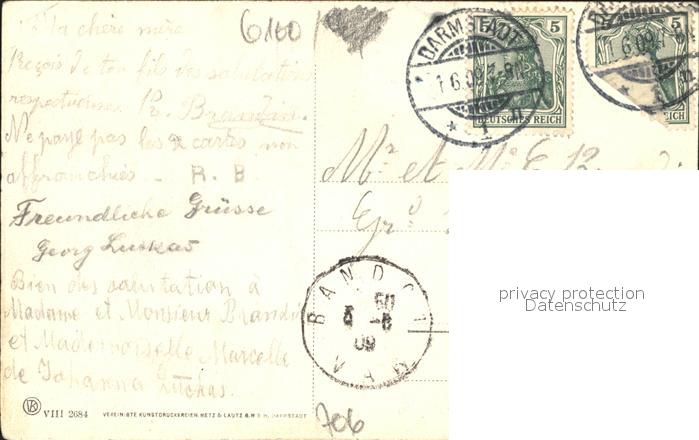 6160
Ma chère mère
Reçois de ton fils des salutations
respectueuses R.
Ne paye pas les 2 cartes non
affranchies - R. B
Freundliche Grüsse
Georg Luckas
Bien des salutation à
Madame et Monsieur Brandi
et Mademoiselle Marcelle
de Johanna Luckas.
VIII 2684 VEREINIGTE KUNSTDRUCKEREIEN, METZ & LAUTZ G.M.B.H. DARMSTADT
706
DARMSTADT
1.6.09.
* 1
5 5
DEUTSCHES REICH
1.6.09
Mr et Me E. B
BANDOL
VAR
09
privacy protection
Datenschutz